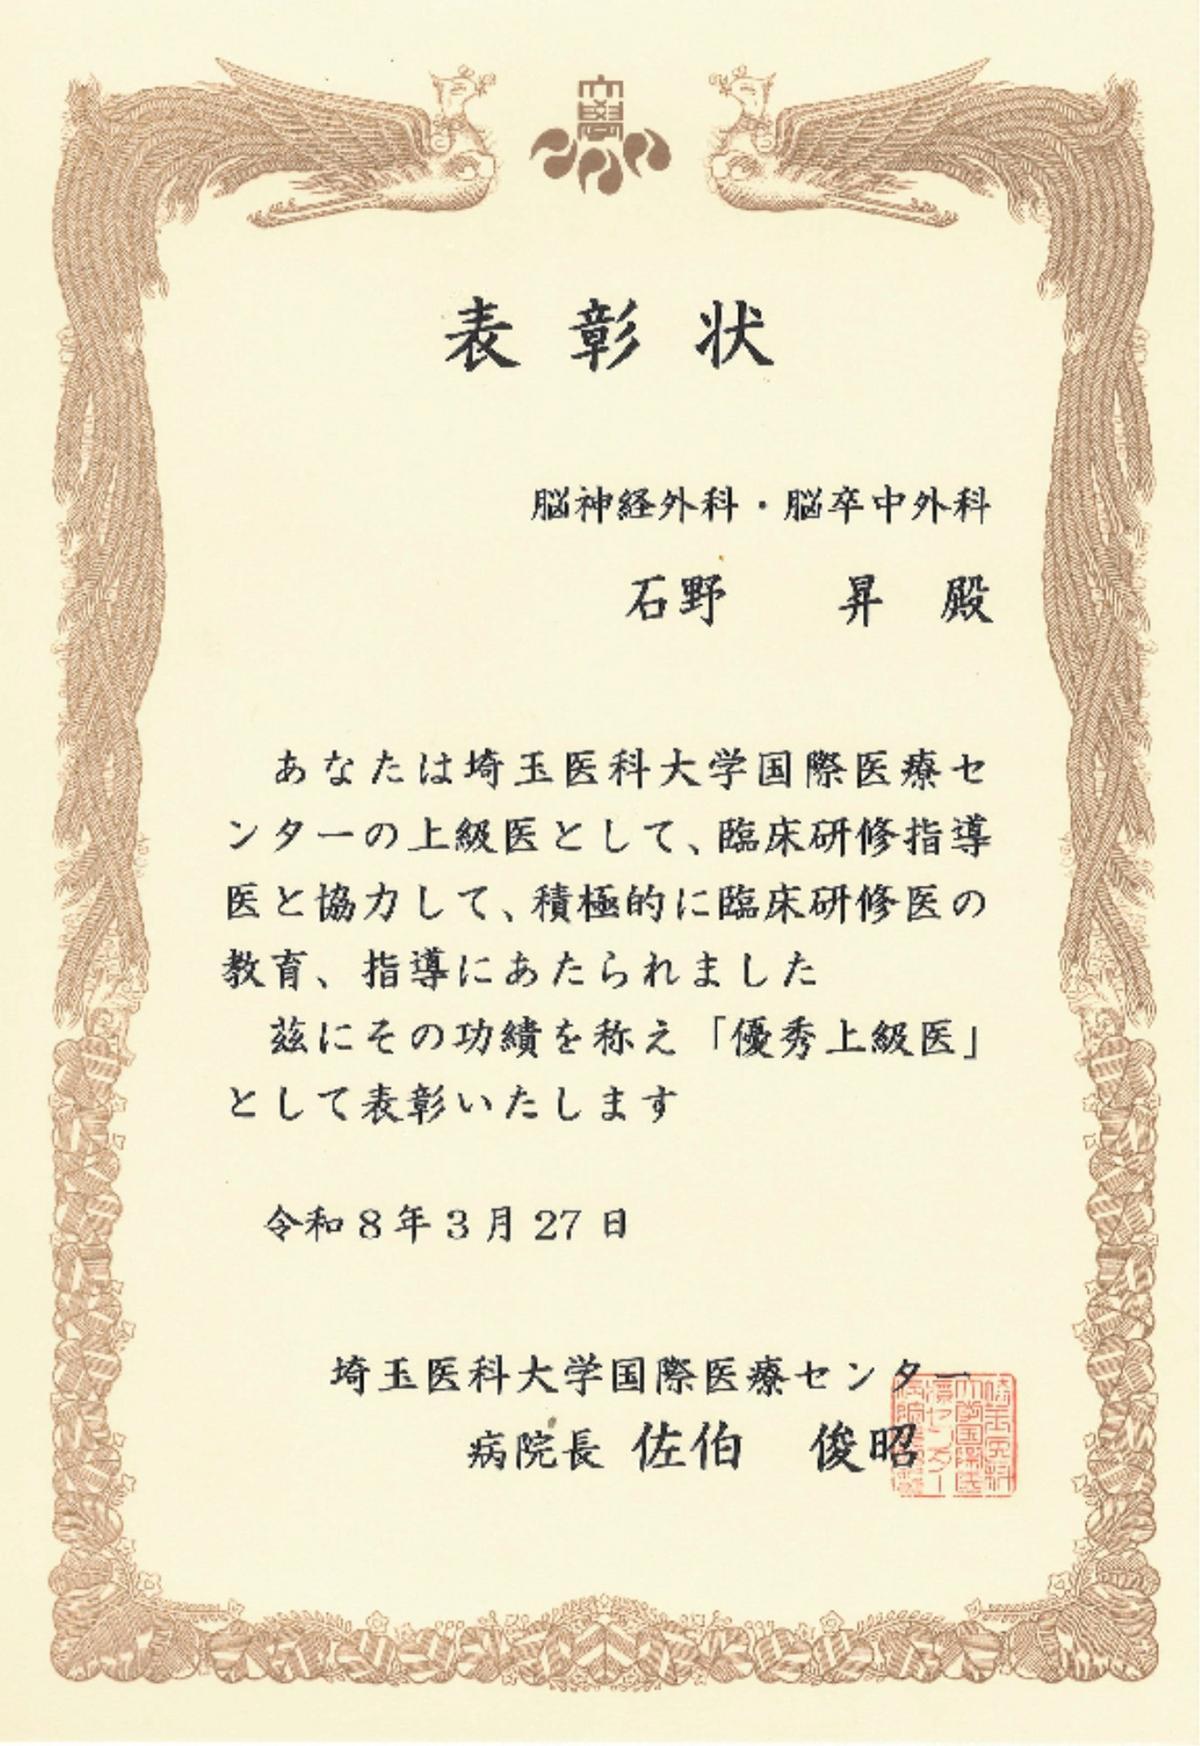 大學
表彰状
脳神経外科・脳卒中外科
石野 昇 殿
あなたは埼玉医科大学国際医療セ
ンターの上級医として、臨床研修指導
医と協力して、積極的に臨床研修医の
教育、指導にあたられました
茲にその功績を称え「優秀上級医」
として表彰いたします
令和8年3月27日
埼玉医科大学国際医療センター
病院長 佐伯 俊昭